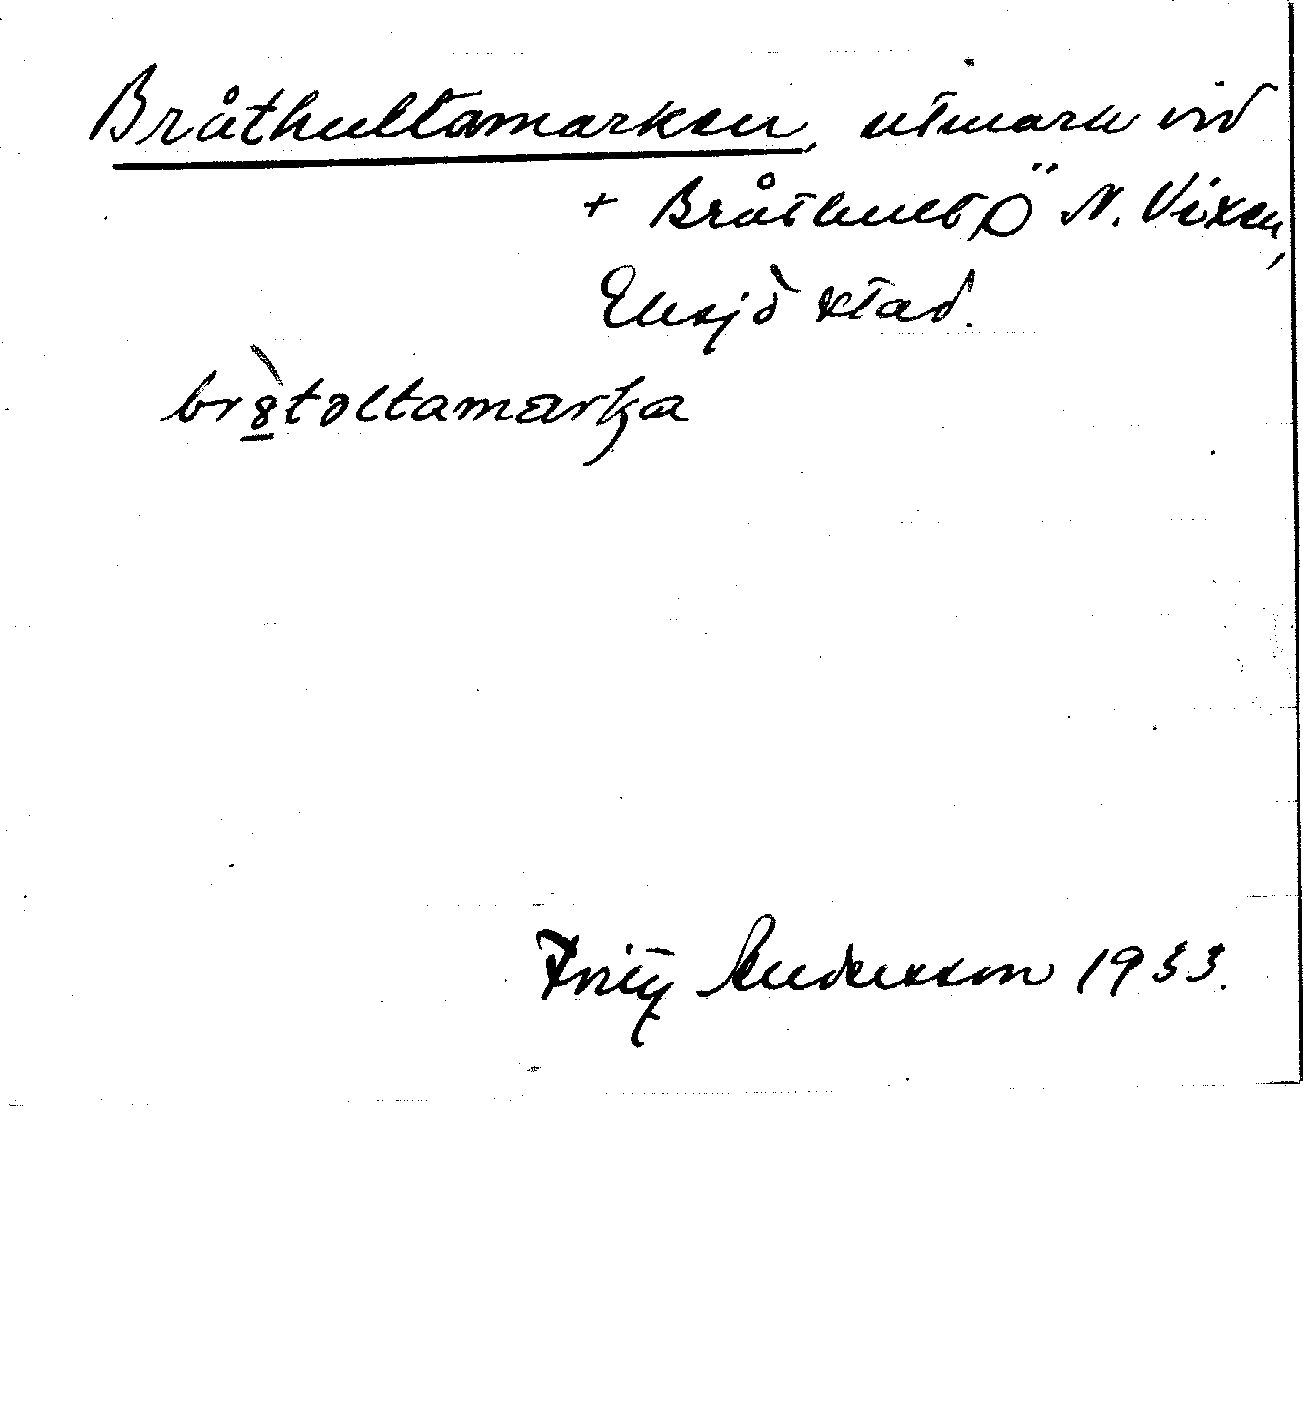 Bråthultamarken, utmark vid
+ Bråthult, Ö N. Vixen,
Eksjö stad.
bròtoltamarka
Fritz Andersson 1933.